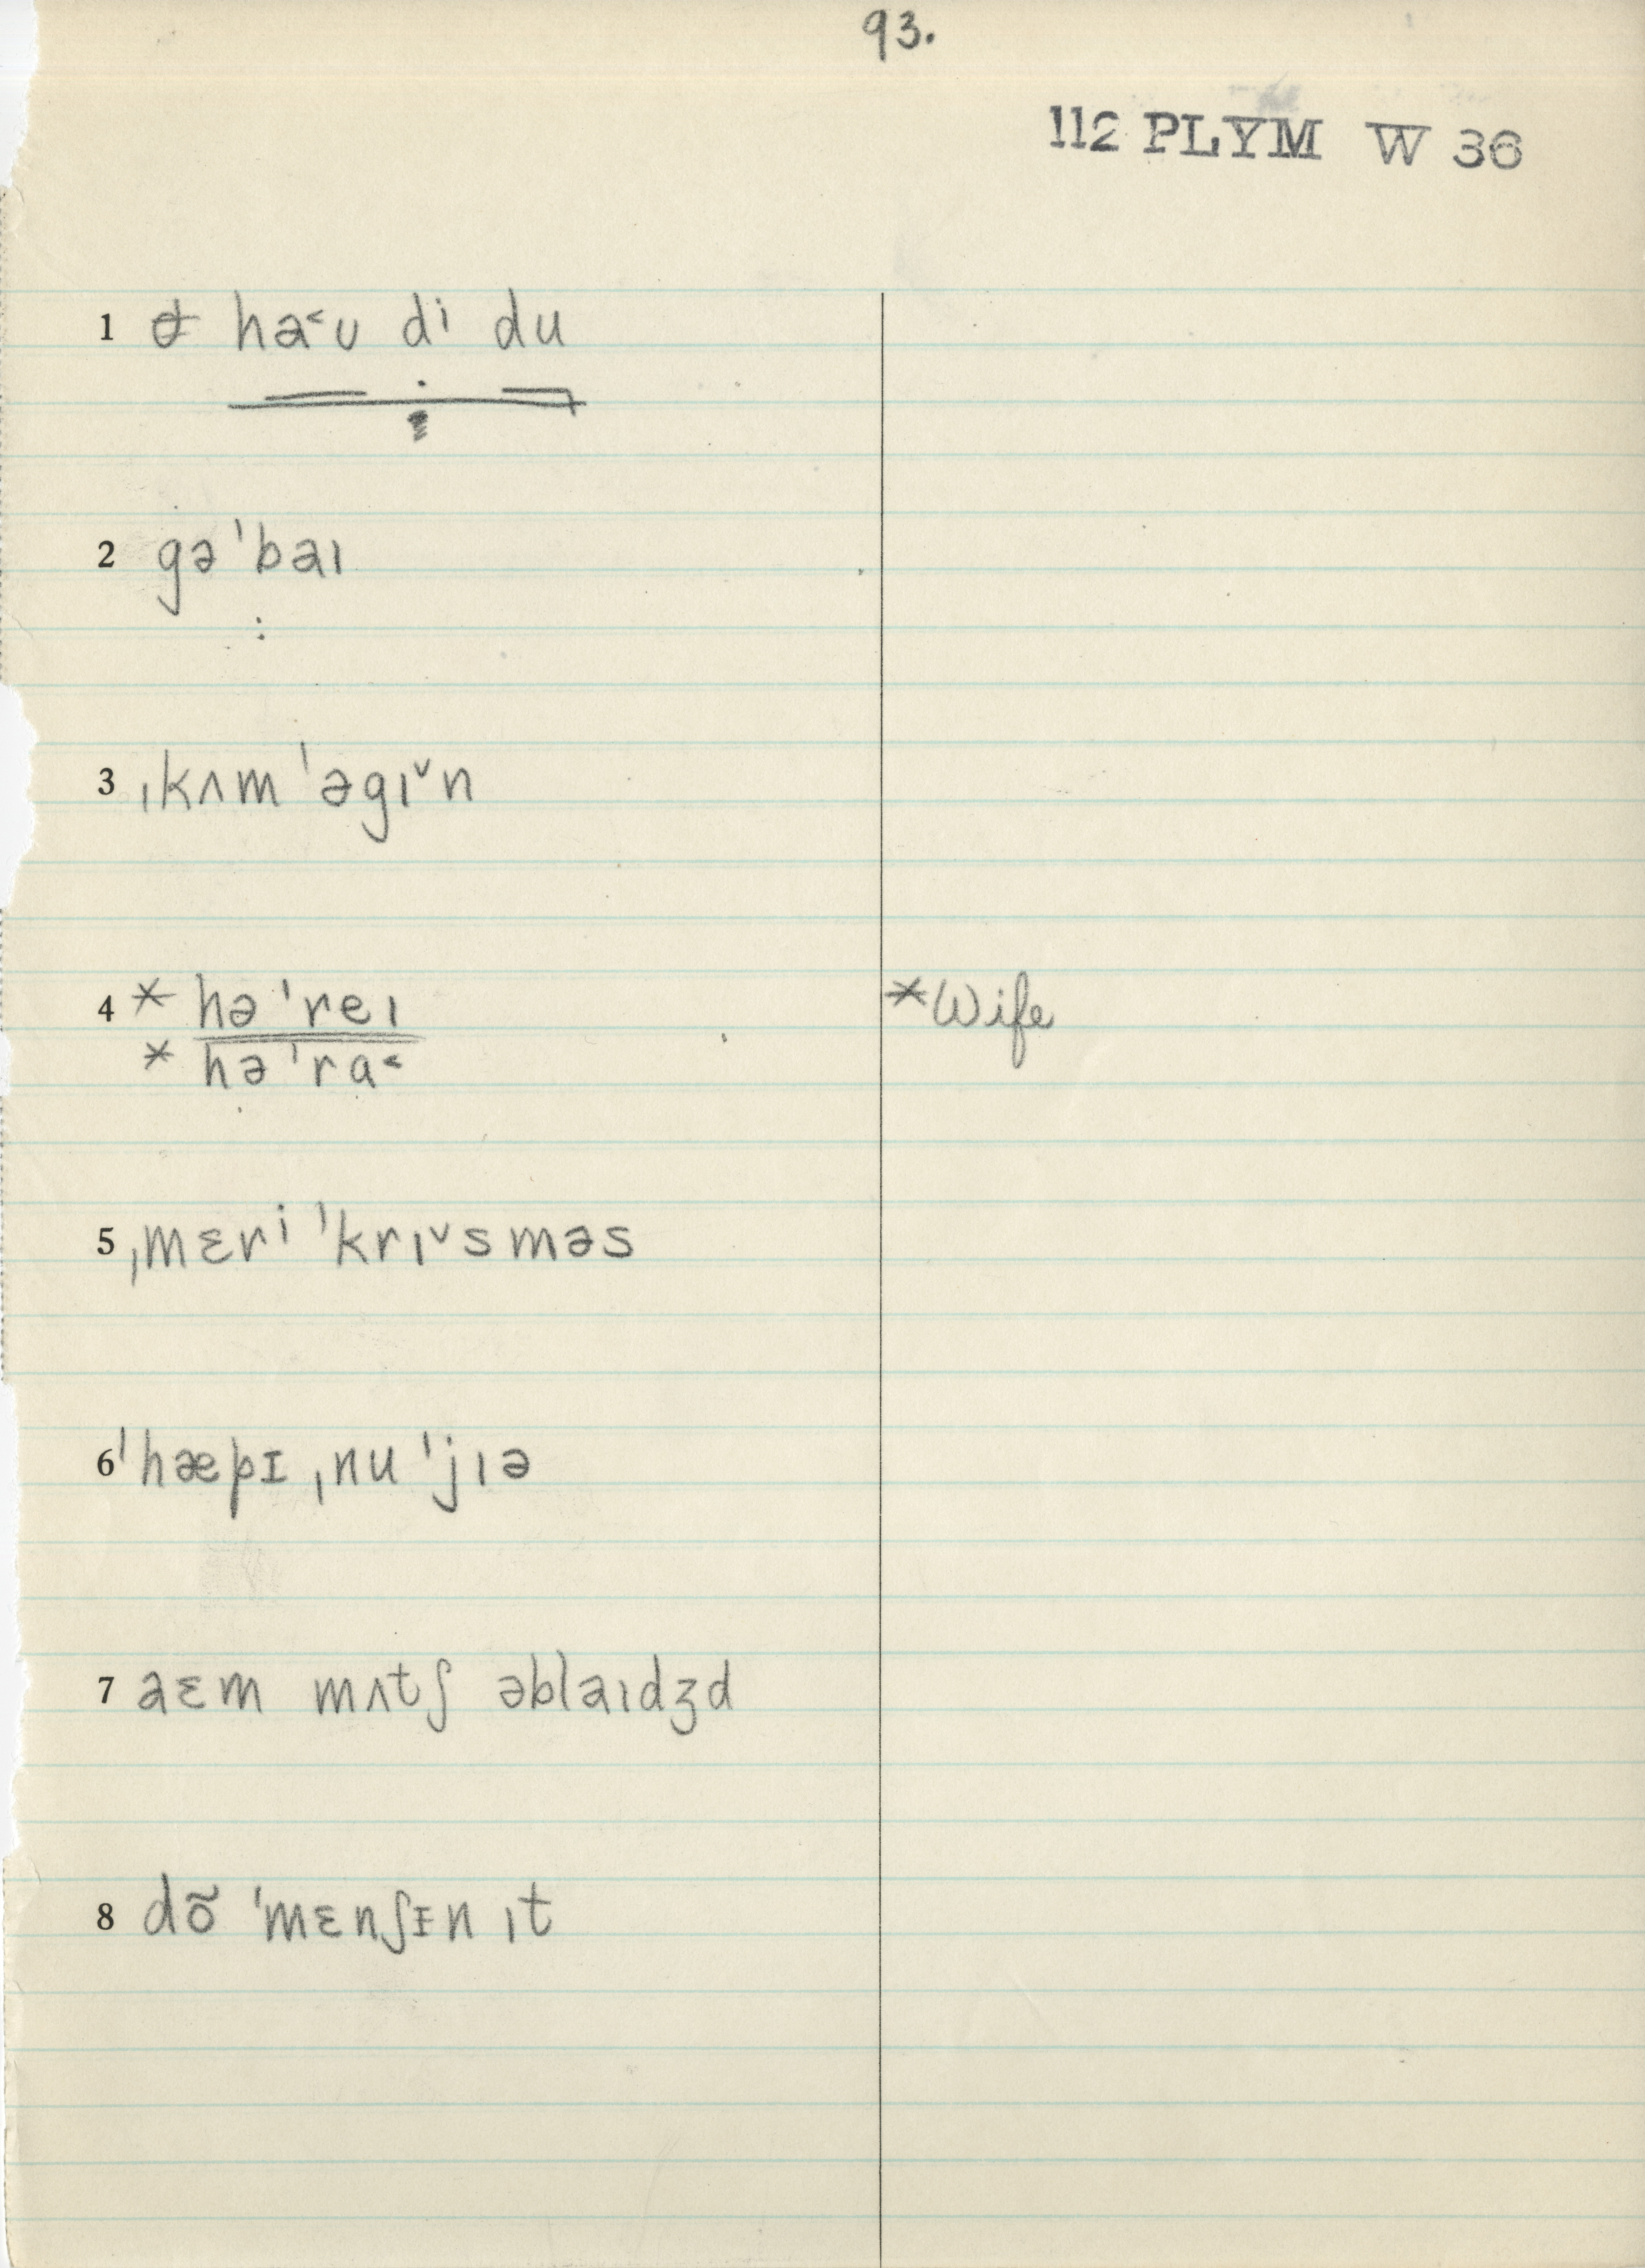 93.
112 PLYM W 36
1 ha˂ʊ di du
2 gə ˈbaɪ
3 ˌkʌm ˈəgɪ˅n
4 * hə ˈreɪ *Wife
* hə ˈra˂
5 ˌmɛri ˈkrɪ˅sməs
6 ˈhæpɪ ˌnu ˈjɪə
7 aɛm mʌtʃ əblaɪdʒd
8 dõ ˈmɛnʃɪn ɪt